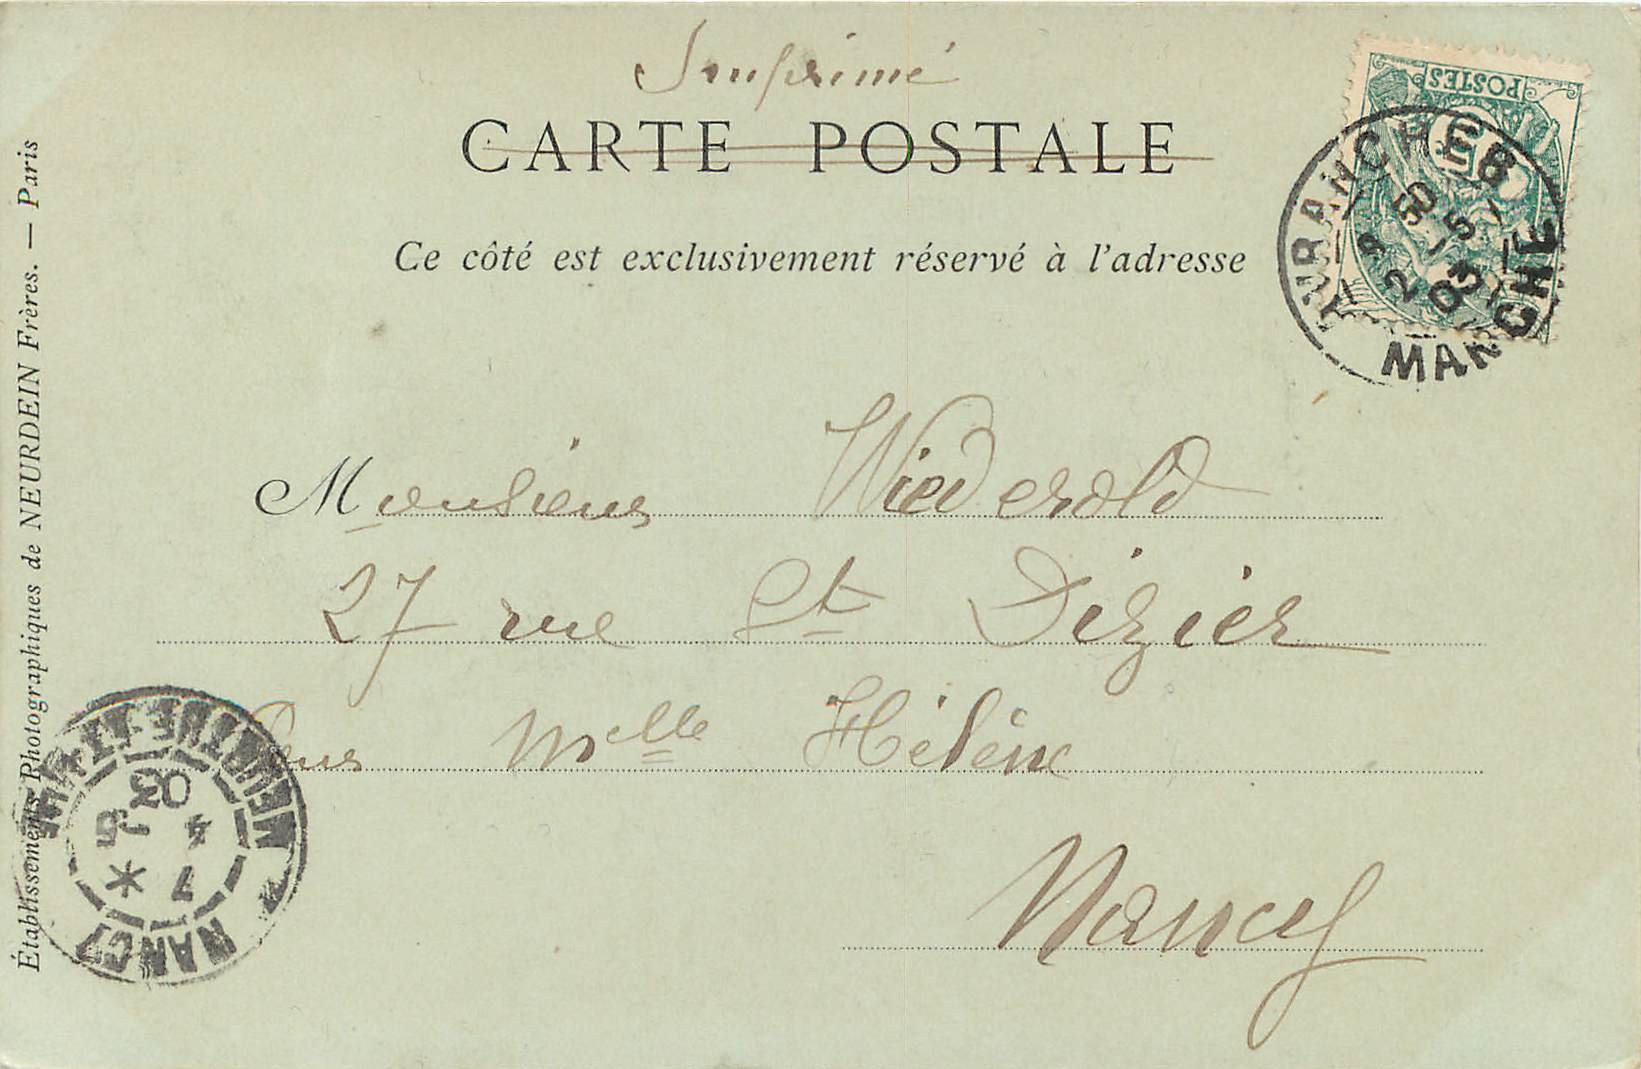 Imprimé
CARTE POSTALE
Ce côté est exclusivement réservé à l'adresse
POSTES
5
AVRANCHES
8 50
2 -5
03
MANCHE
Monsieur Wiederold
27 rue St Dizier
Pour Melle Hélène
Nancy
NANCY
7 *
4 -5
03
MEURTHE-ET-M
Établissements Photographiques de NEURDEIN Frères. — Paris